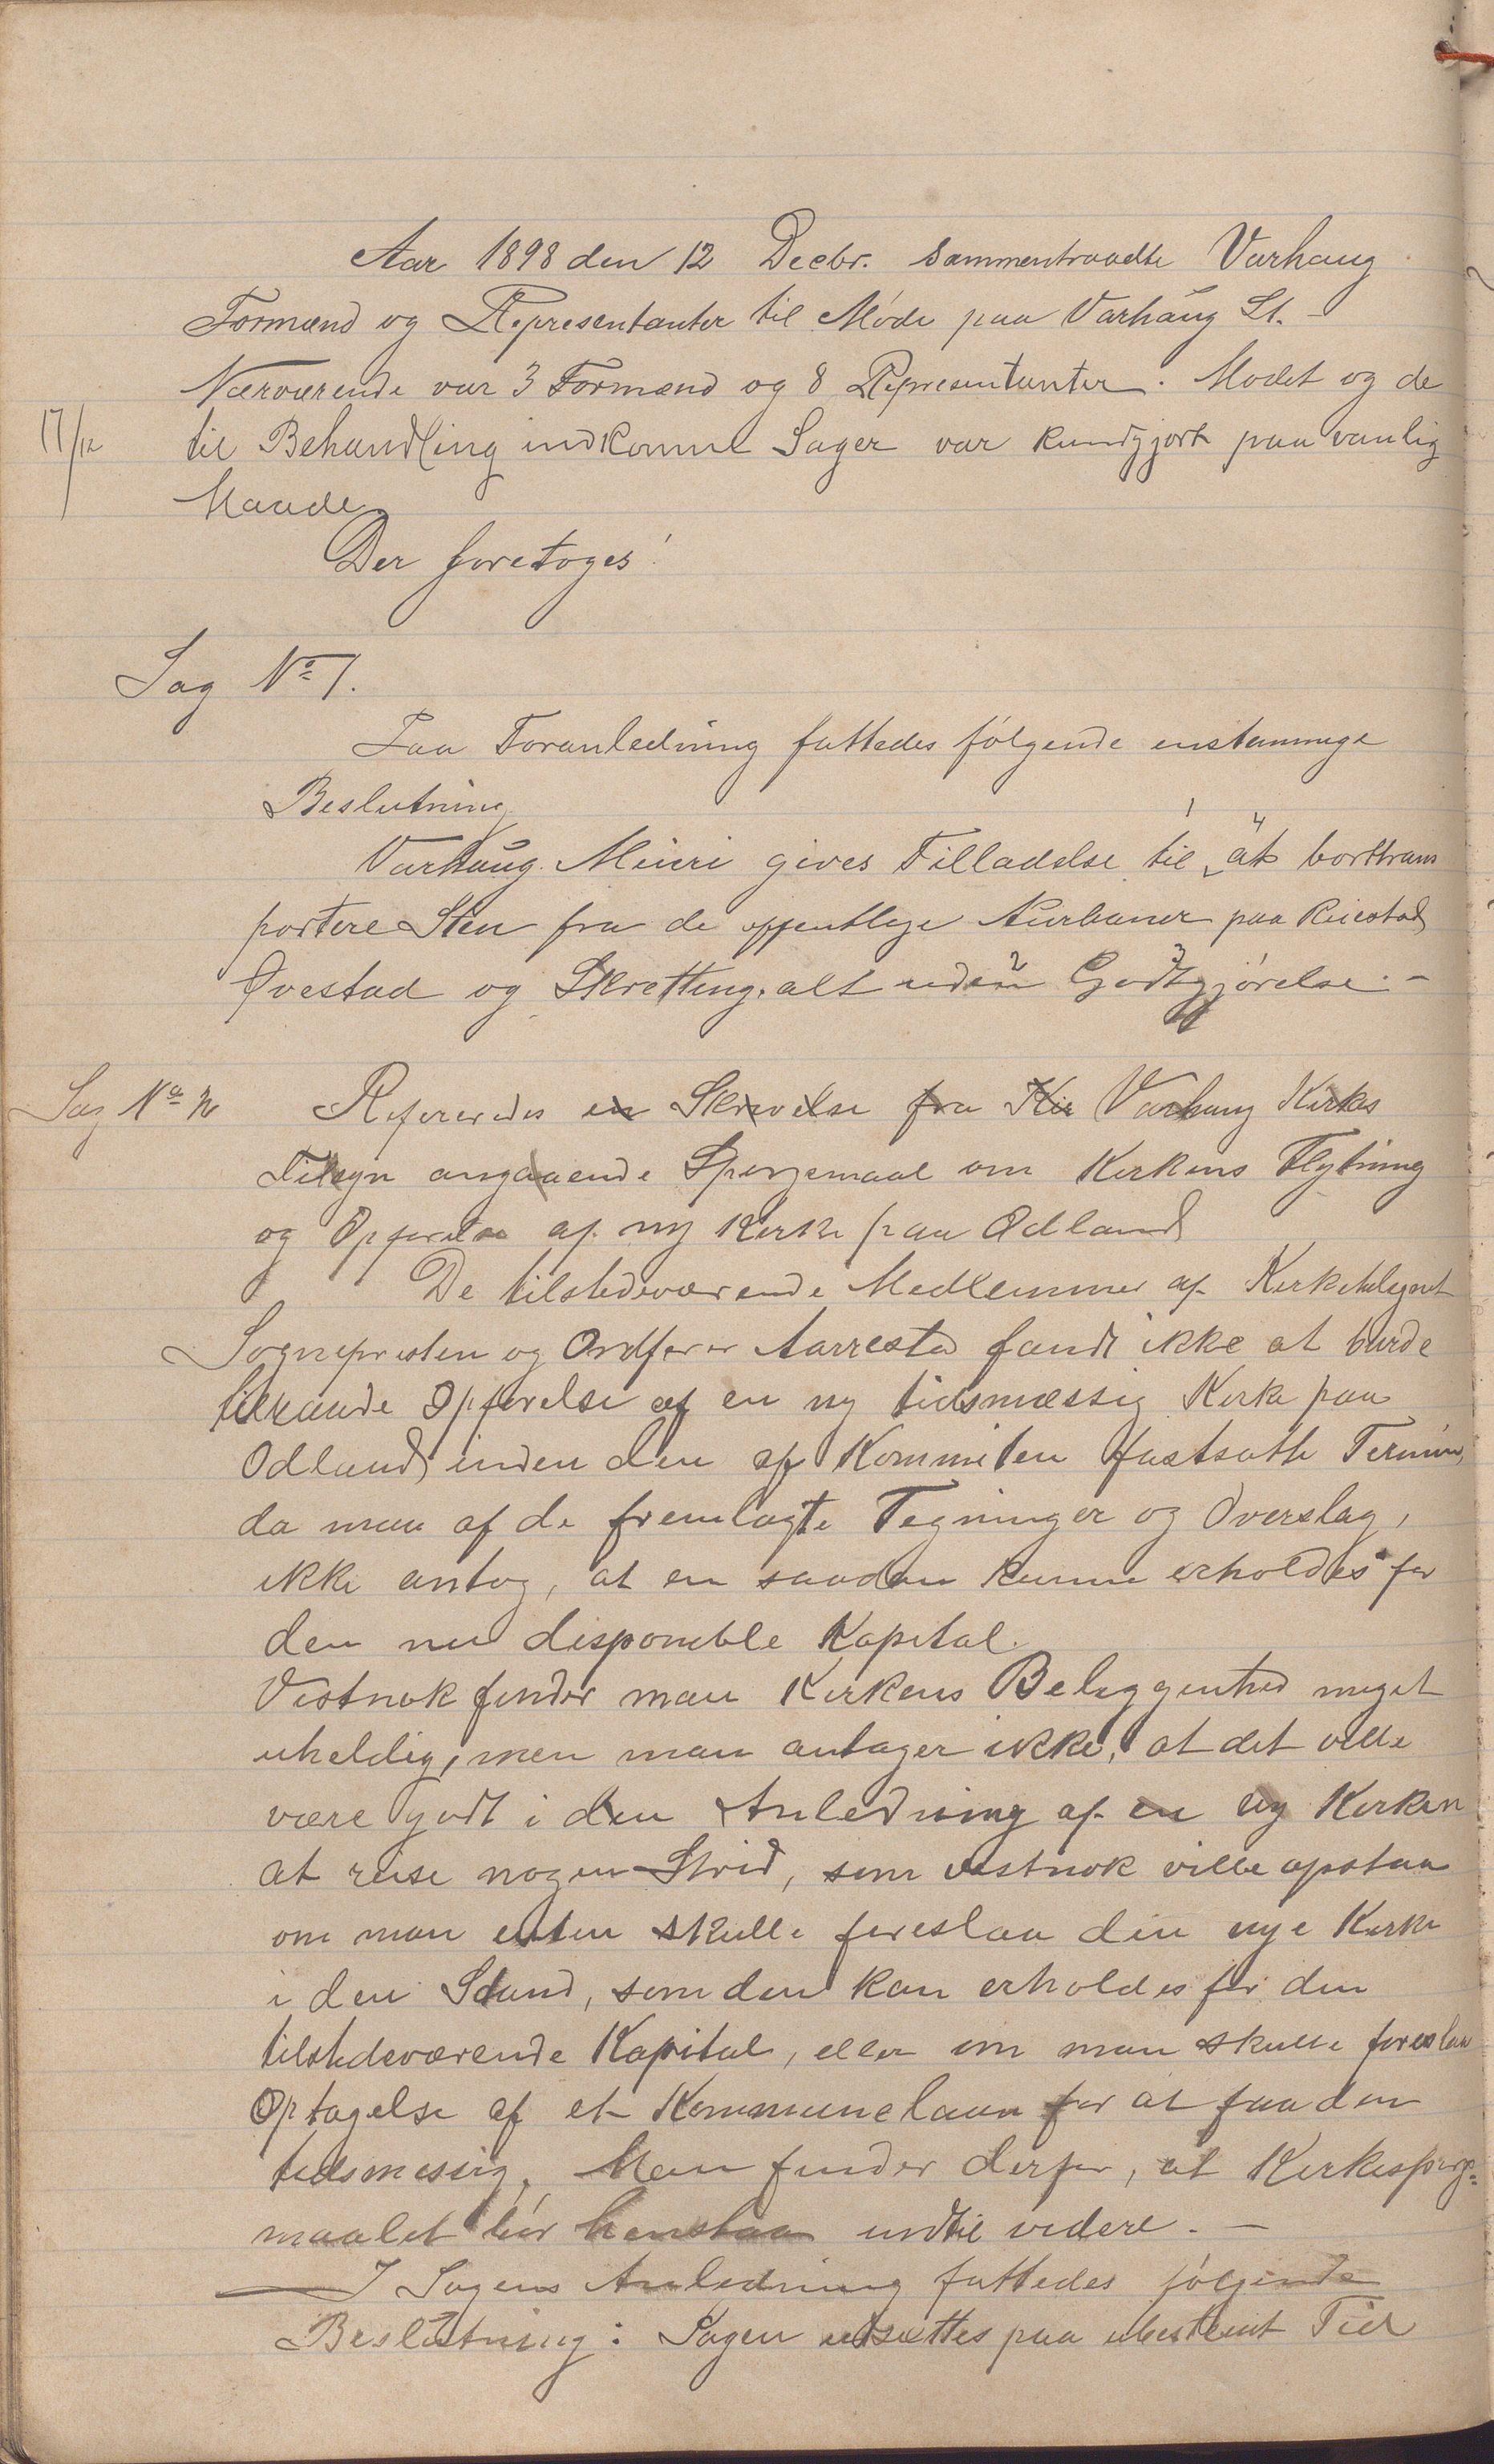 Aar 1898 den 12 Decbr. sammentraadte Varhaug
Formænd og Repræsentanter til Møde paa Varhaug St. -
Nærværende var 3 Formænd og 8 Repræsentanter. Mødet og de
17/12 til Behandling indkomne Sager var kundgjort paa vanlig
Maade.
Der foretoges:
Sag No 1.
Paa Foranledning fattedes følgende enstemmige
Beslutning
Varhaug Mieri gives Tilladelse til 1 4 at borttrans
portere Sten fra de offentlige Aurbaner paa Riiestad
Qvestad og Skretting, alt uden 2 Godtgjørelse 3. -
Sag No 2 Refereredes en Skrivelse fra Kir Varhaug Kirkes
Tilsyn angaaende Spørgsmaal om Kirkens Flytning
og Opførelse af ny Kirke paa Odland
De tilstedeværende Medlemmer af Kirketilsynet
Sognepresten og Ordfører Aarrestad fandt ikke at burde
tilraade Opførelse af en ny tidsmæssig Kirke paa
Odland inden den af Kommiten fastsatte Termin,
da man af de fremlagte Tegninger og Overslag,
ikke antog, at en saadan kunne erholdes for
den nu disponible Kapital.
Vistnok finder man Kirkens Beliggenhed meget
uheldig, men man antager ikke, at det ville
være godt i den Anledning af en ny Kirken
at reise nogen Strid, som vistnok ville opstaa
om man enten skulle foreslaa den nye Kirke
i den Stand, som den kan erholdes for den
tilstedeværende Kapital, eller om man skulle foreslaa
Optagelse af et Kommunelaan for at faa den
tidsmessig. Man finder derfor, at Kirkespørgs=
maalet bør henstaa indtil videre. -
I Sagens Anledning fattedes følgende
Beslutning: Sagen udsættes paa ubestemt Tid